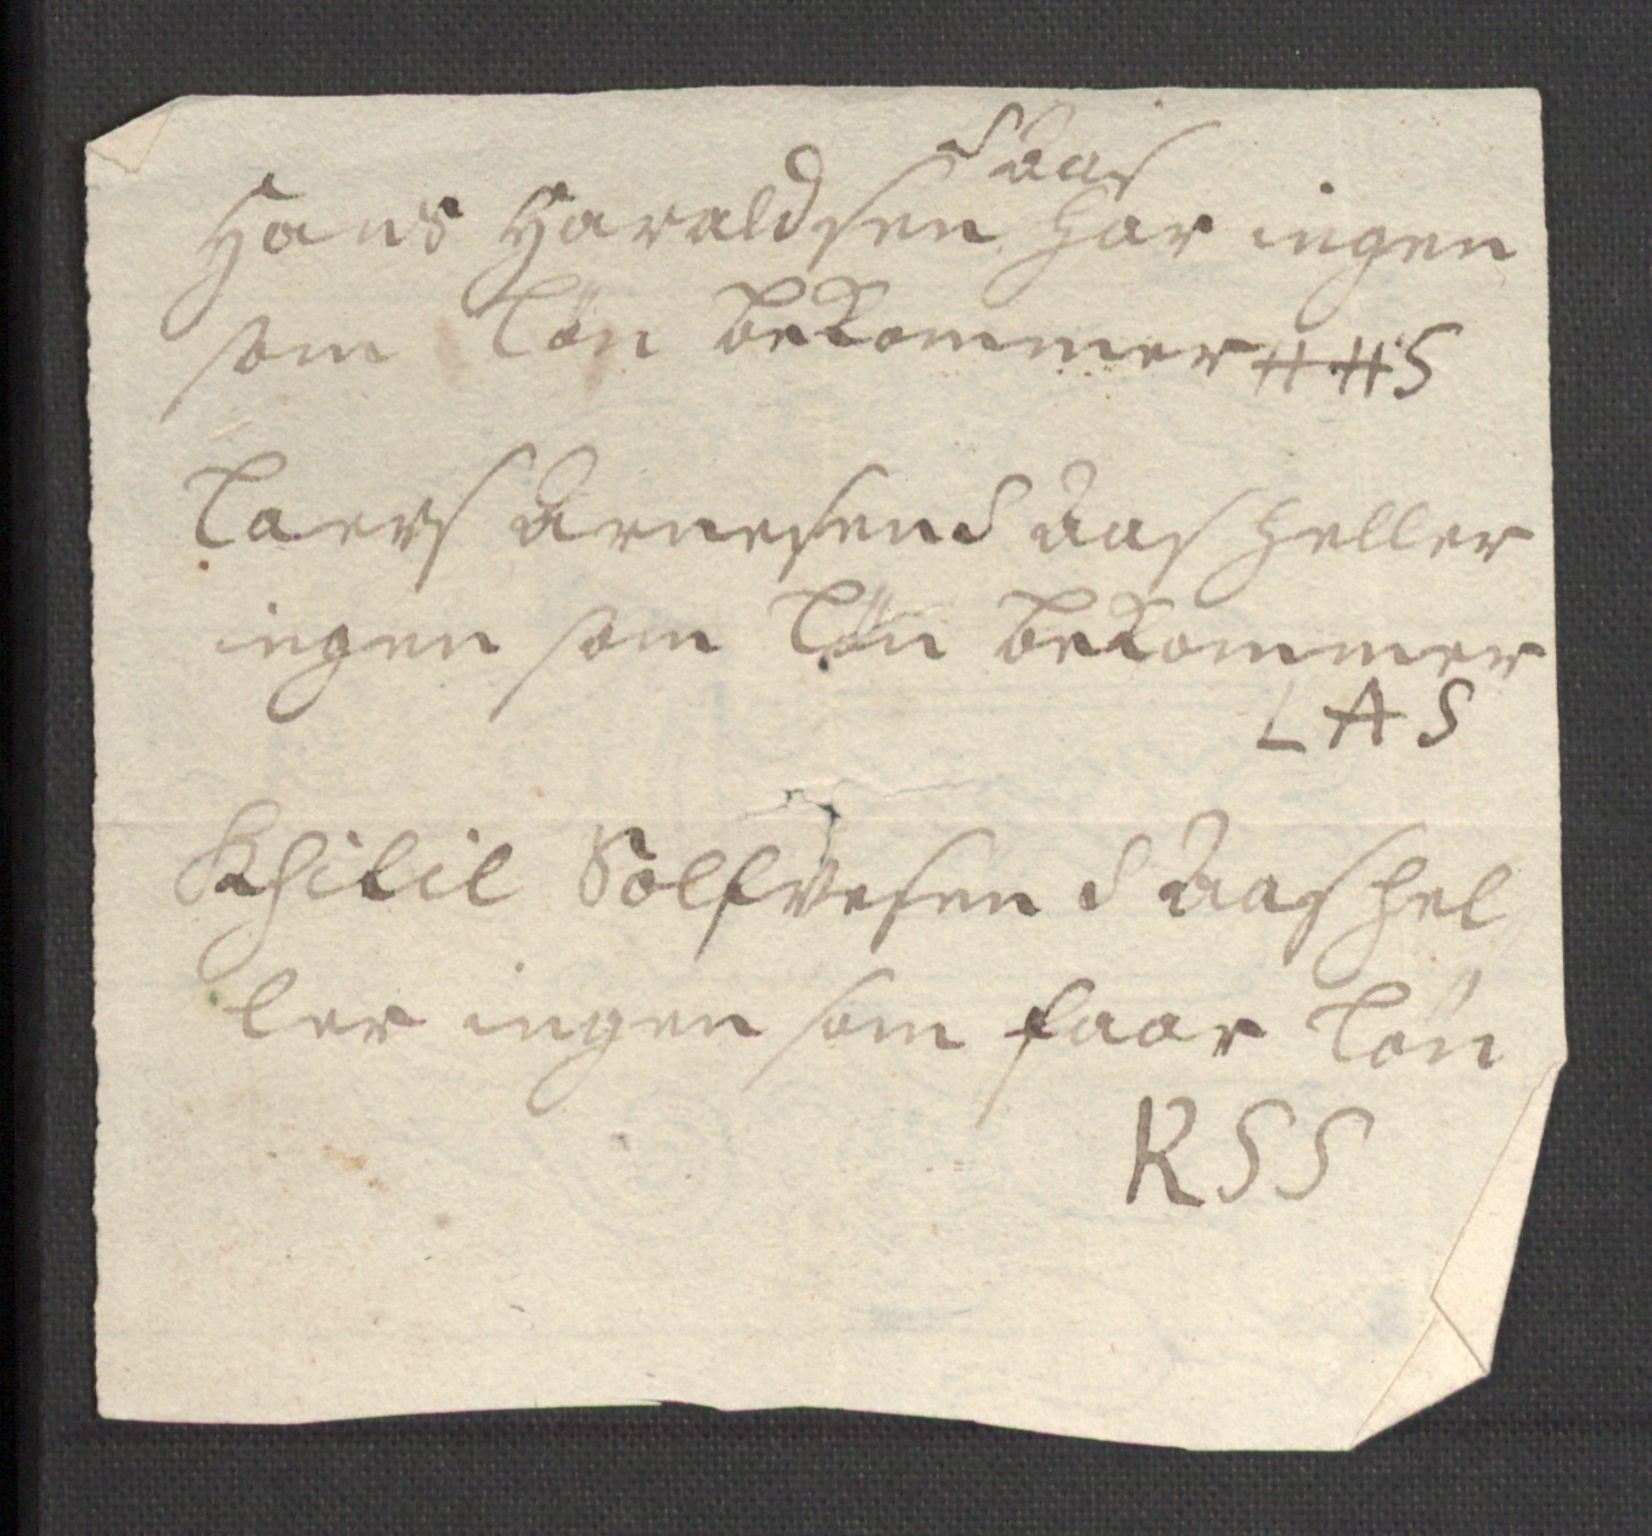 S Aas
Hans Haraldsen har ingen
som lön bekommer HHS
Laers Arnesen S Aas heller
ingen som lön bekommer
LAS
Khilil Solfvesen S Aas hel
ler ingen som faar lön
KSS